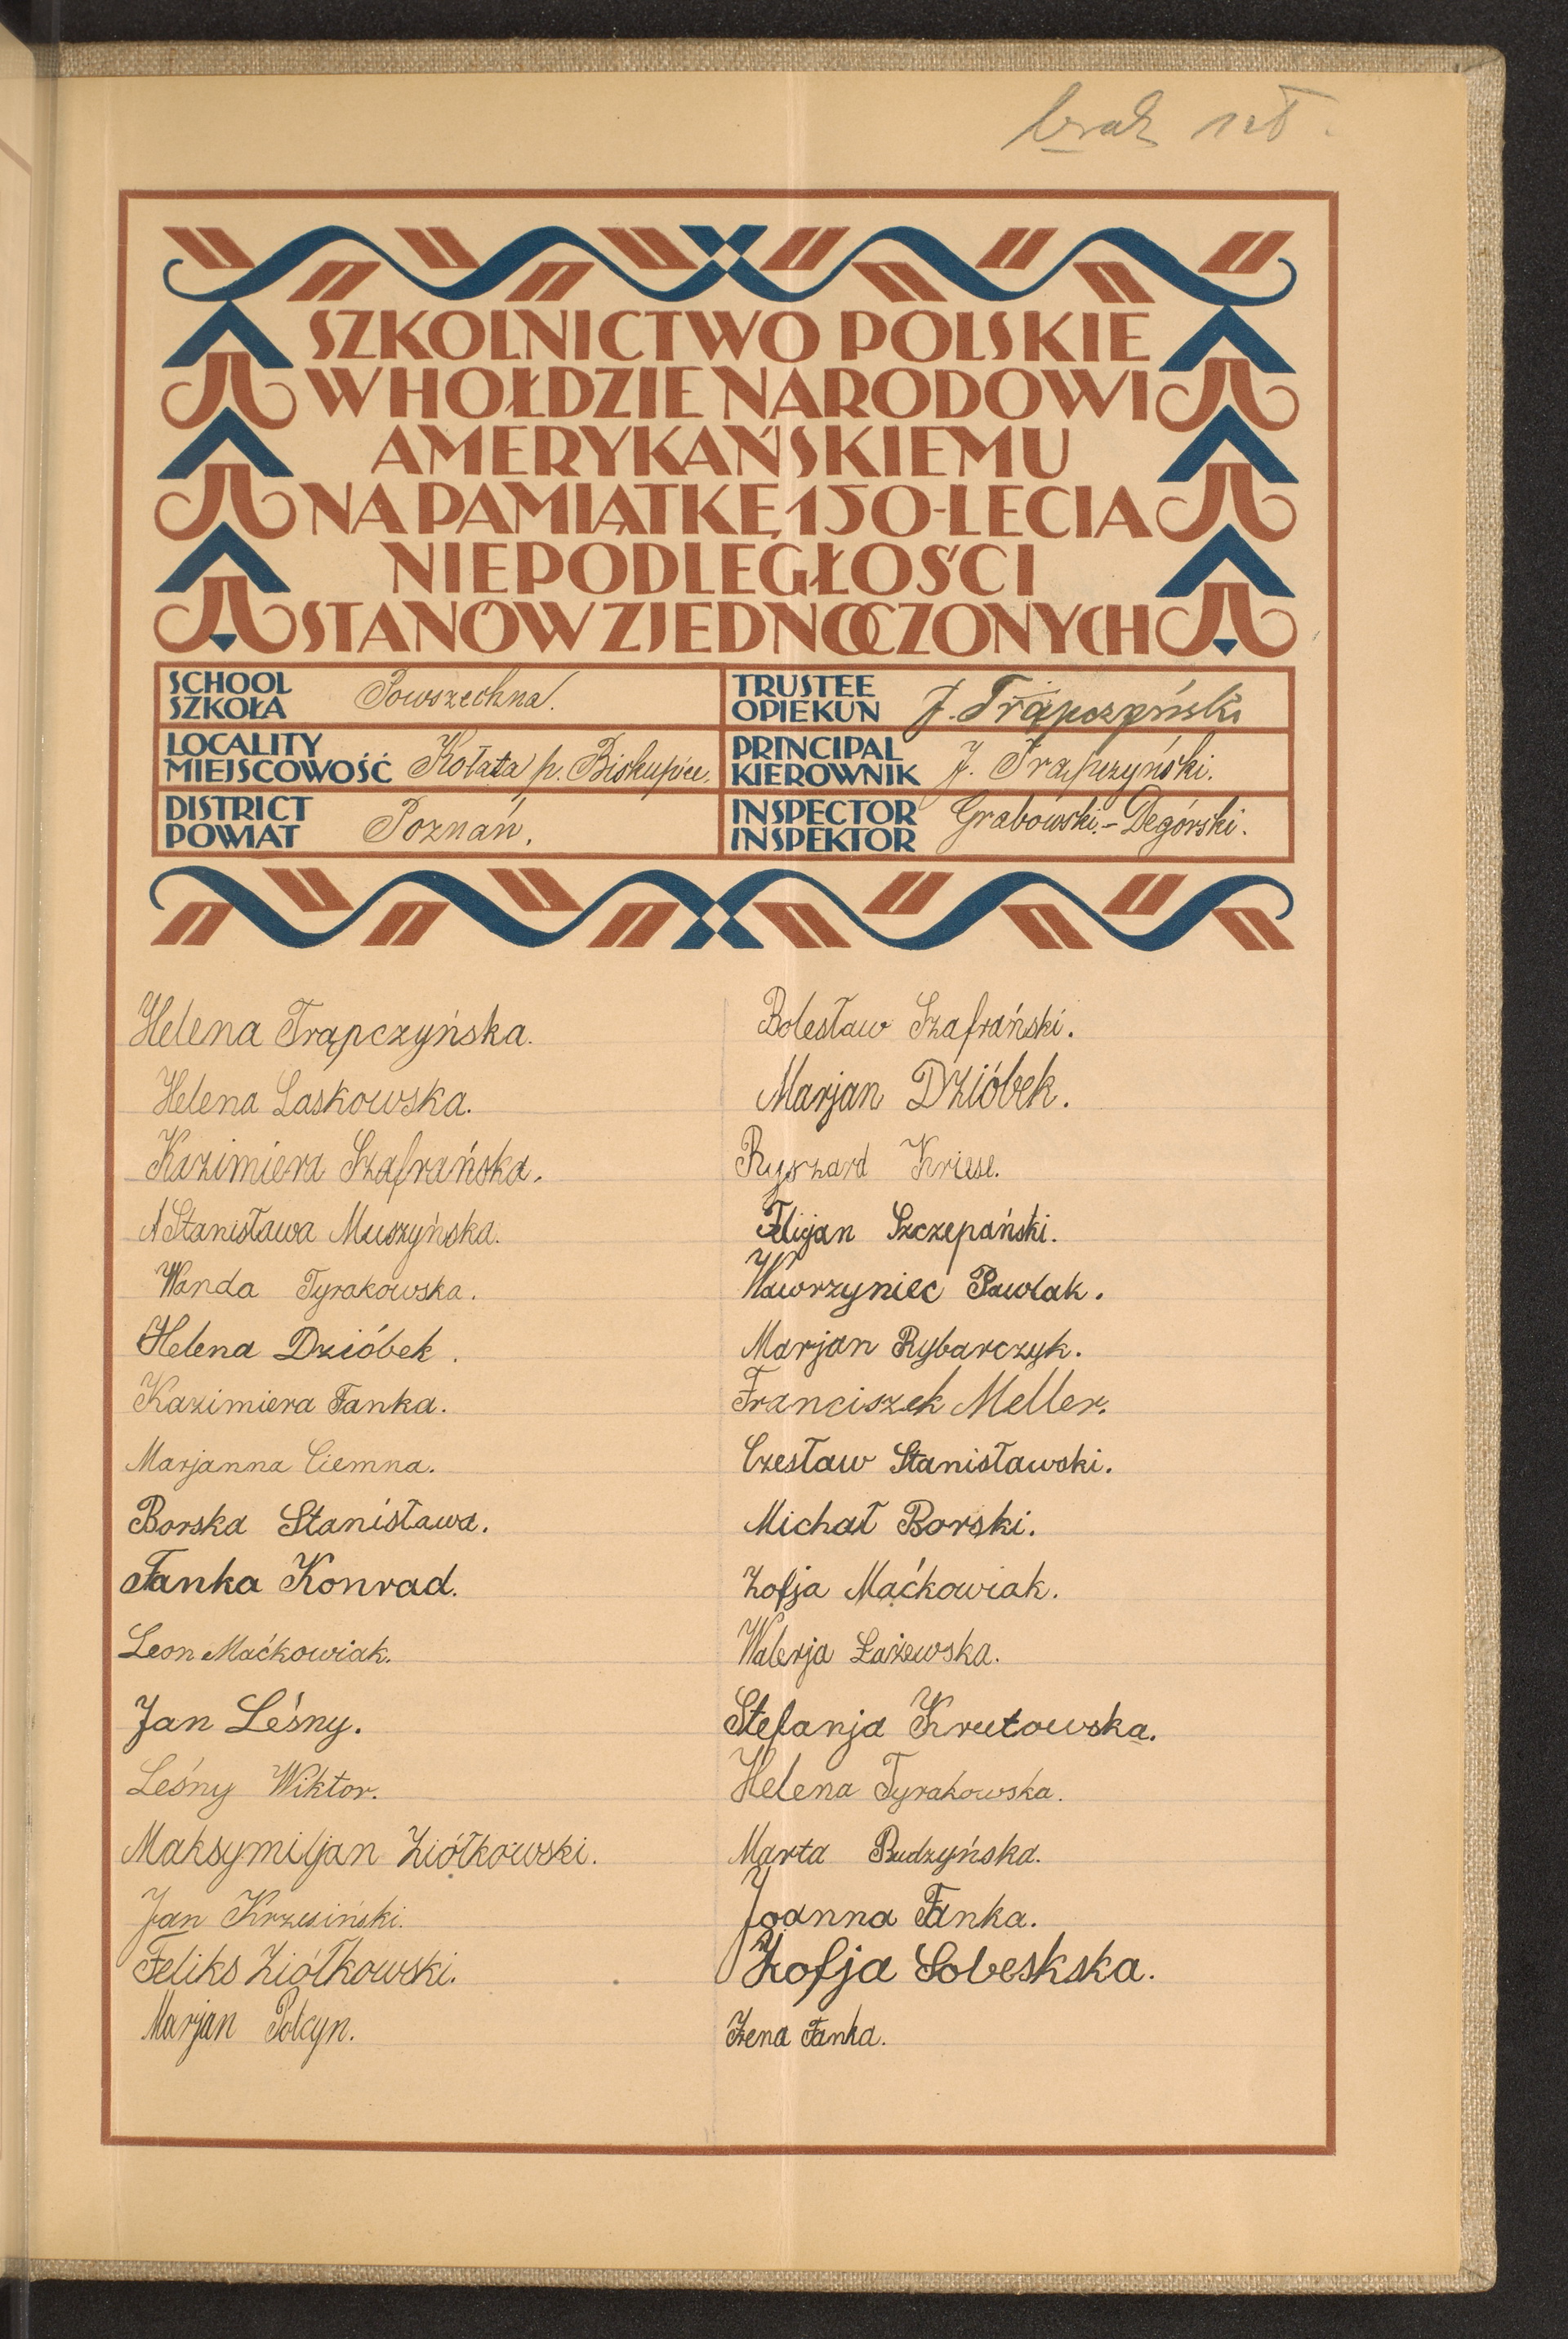 brak
SZKOLNICTWO POLSKIE
W HOŁDZIE NARODOWI
AMERYKAŃSKIEMU
NA PAMIĄTKĘ 150-LECIA
NIEPODLEGŁOŚCI
STANÓW ZJEDNOCZONYCH
SCHOOL
SZKOŁA
Powszechna.
TRUSTEE
OPIEKUN
J. Trąpczyński
LOCALITY
MIEJSCOWOŚĆ
Kołata p. Biskupice.
PRINCIPAL
KIEROWNIK
J. Trąpczyński.
DISTRICT
POWIAT
Poznań.
INSPECTOR
INSPEKTOR
Grabowski.-Degórski.
Helena Trąpczyńska.
Helena Laskowska.
Kazimiera Szafrańska.
Stanisława Muszyńska.
Wanda Tyrakowska.
Helena Dzióbek.
Kazimiera Fanka.
Marjanna Ciemna.
Borska Stanisława.
Fanka Konrad.
Leon Maćkowiak.
Jan Leśny.
Leśny Wiktor.
Maksymiljan Ziółkowski.
Jan Krzesiński.
Feliks Ziółkowski.
Marjan Połcyn.
Bolesław Szafrański.
Marjan Dzióbek.
Ryszard Kriese.
Felijan Szczepański.
Wawrzyniec Pawlak.
Marjan Rybarczyk.
Franciszek Meller.
Czesław Stanisławski.
Michał Borski.
Zofja Maćkowiak.
Walerja Łażewska.
Stefanja Krutowska.
Helena Tyrakowska.
Marta Budzyńska.
Joanna Fanka.
Zofja Sobeskska.
Fanka.